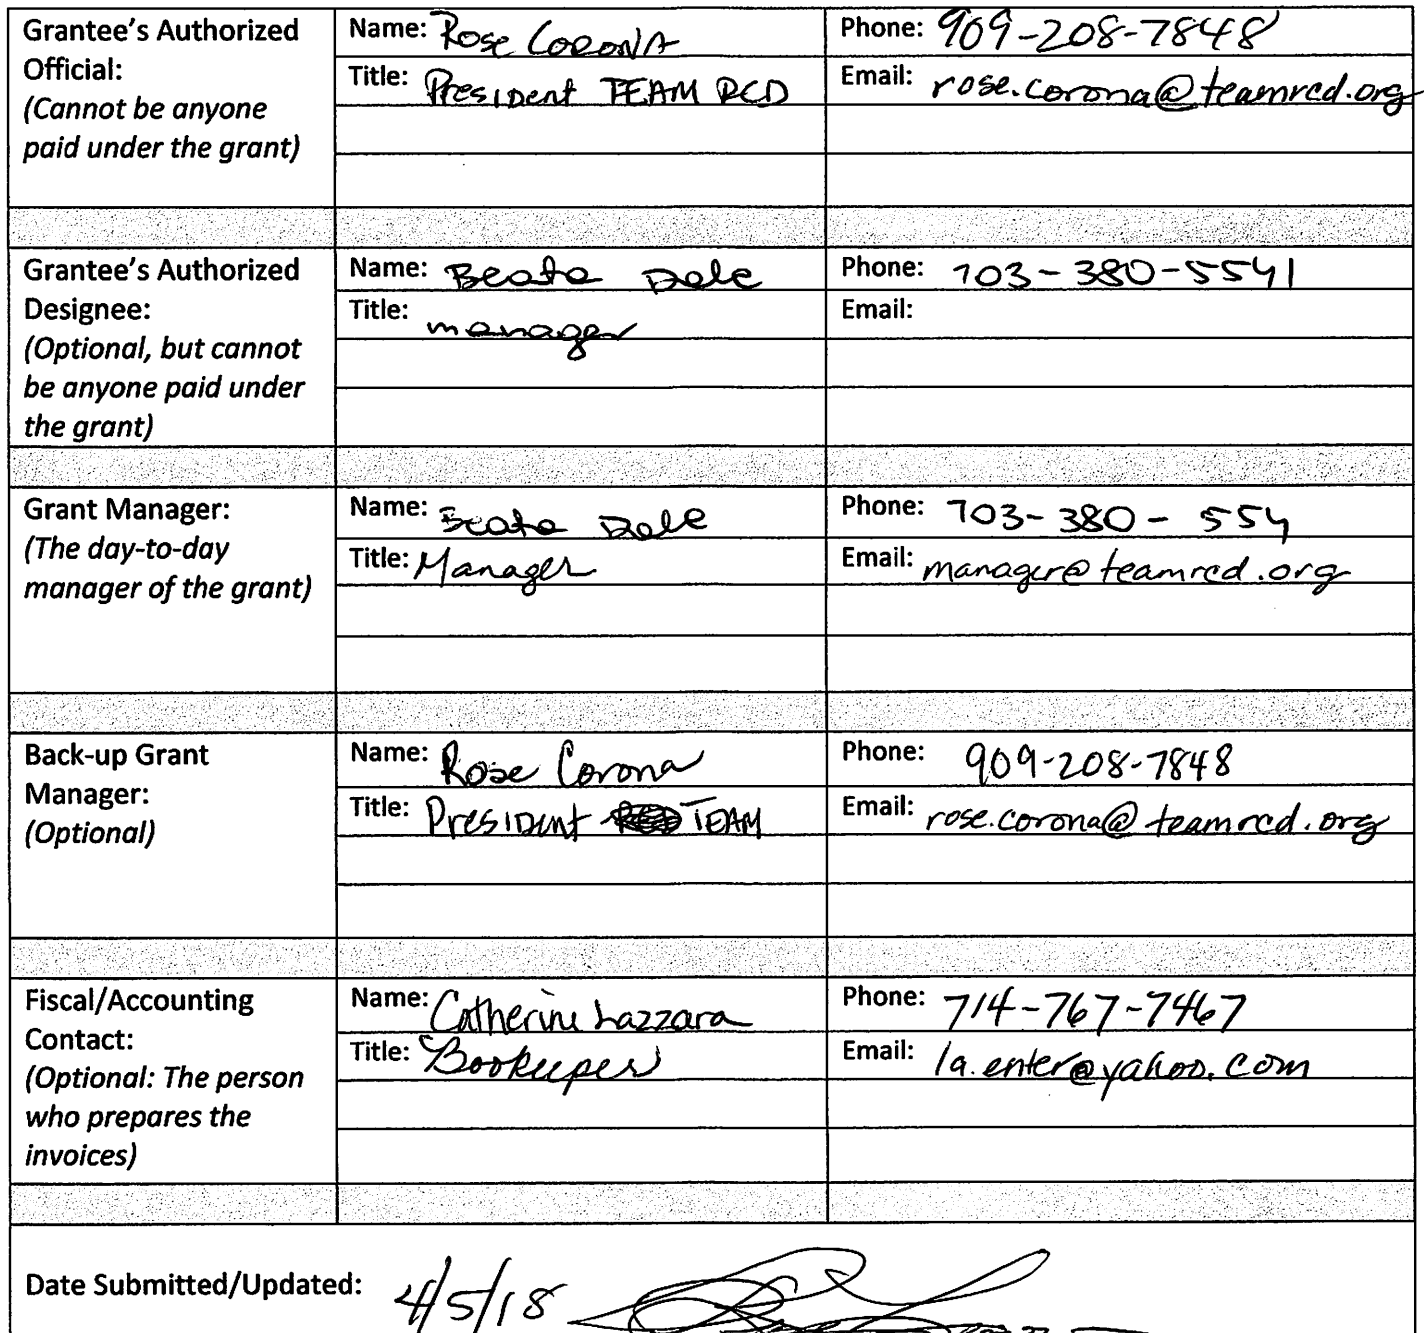 Grantee's Authorized
Official:
(Cannot be anyone
paid under the grant)
Name: Rose CORONA
Phone: 909-208-7848
Title: President TEAM RCD
Email: rose.corona@teamrcd.org
Grantee's Authorized
Designee:
(Optional, but cannot
be anyone paid under
the grant)
Name: Beata Dele
Phone: 703-380-5541
Title: manager
Email:
Grant Manager:
(The day-to-day
manager of the grant)
Name: Beata Dele
Phone: 703-380-554
Title: Manager
Email: manager@teamrcd.org
Back-up Grant
Manager:
(Optional)
Name: Rose Corona
Phone: 909-208-7848
Title: President TEAM
Email: rose.corona@teamrcd.org
Fiscal/Accounting
Contact:
(Optional: The person
who prepares the
invoices)
Name: Catherine Lazzara
Phone: 714-767-7467
Title: Bookeeper
Email: la.enter@yahoo.com
Date Submitted/Updated: 4/5/18